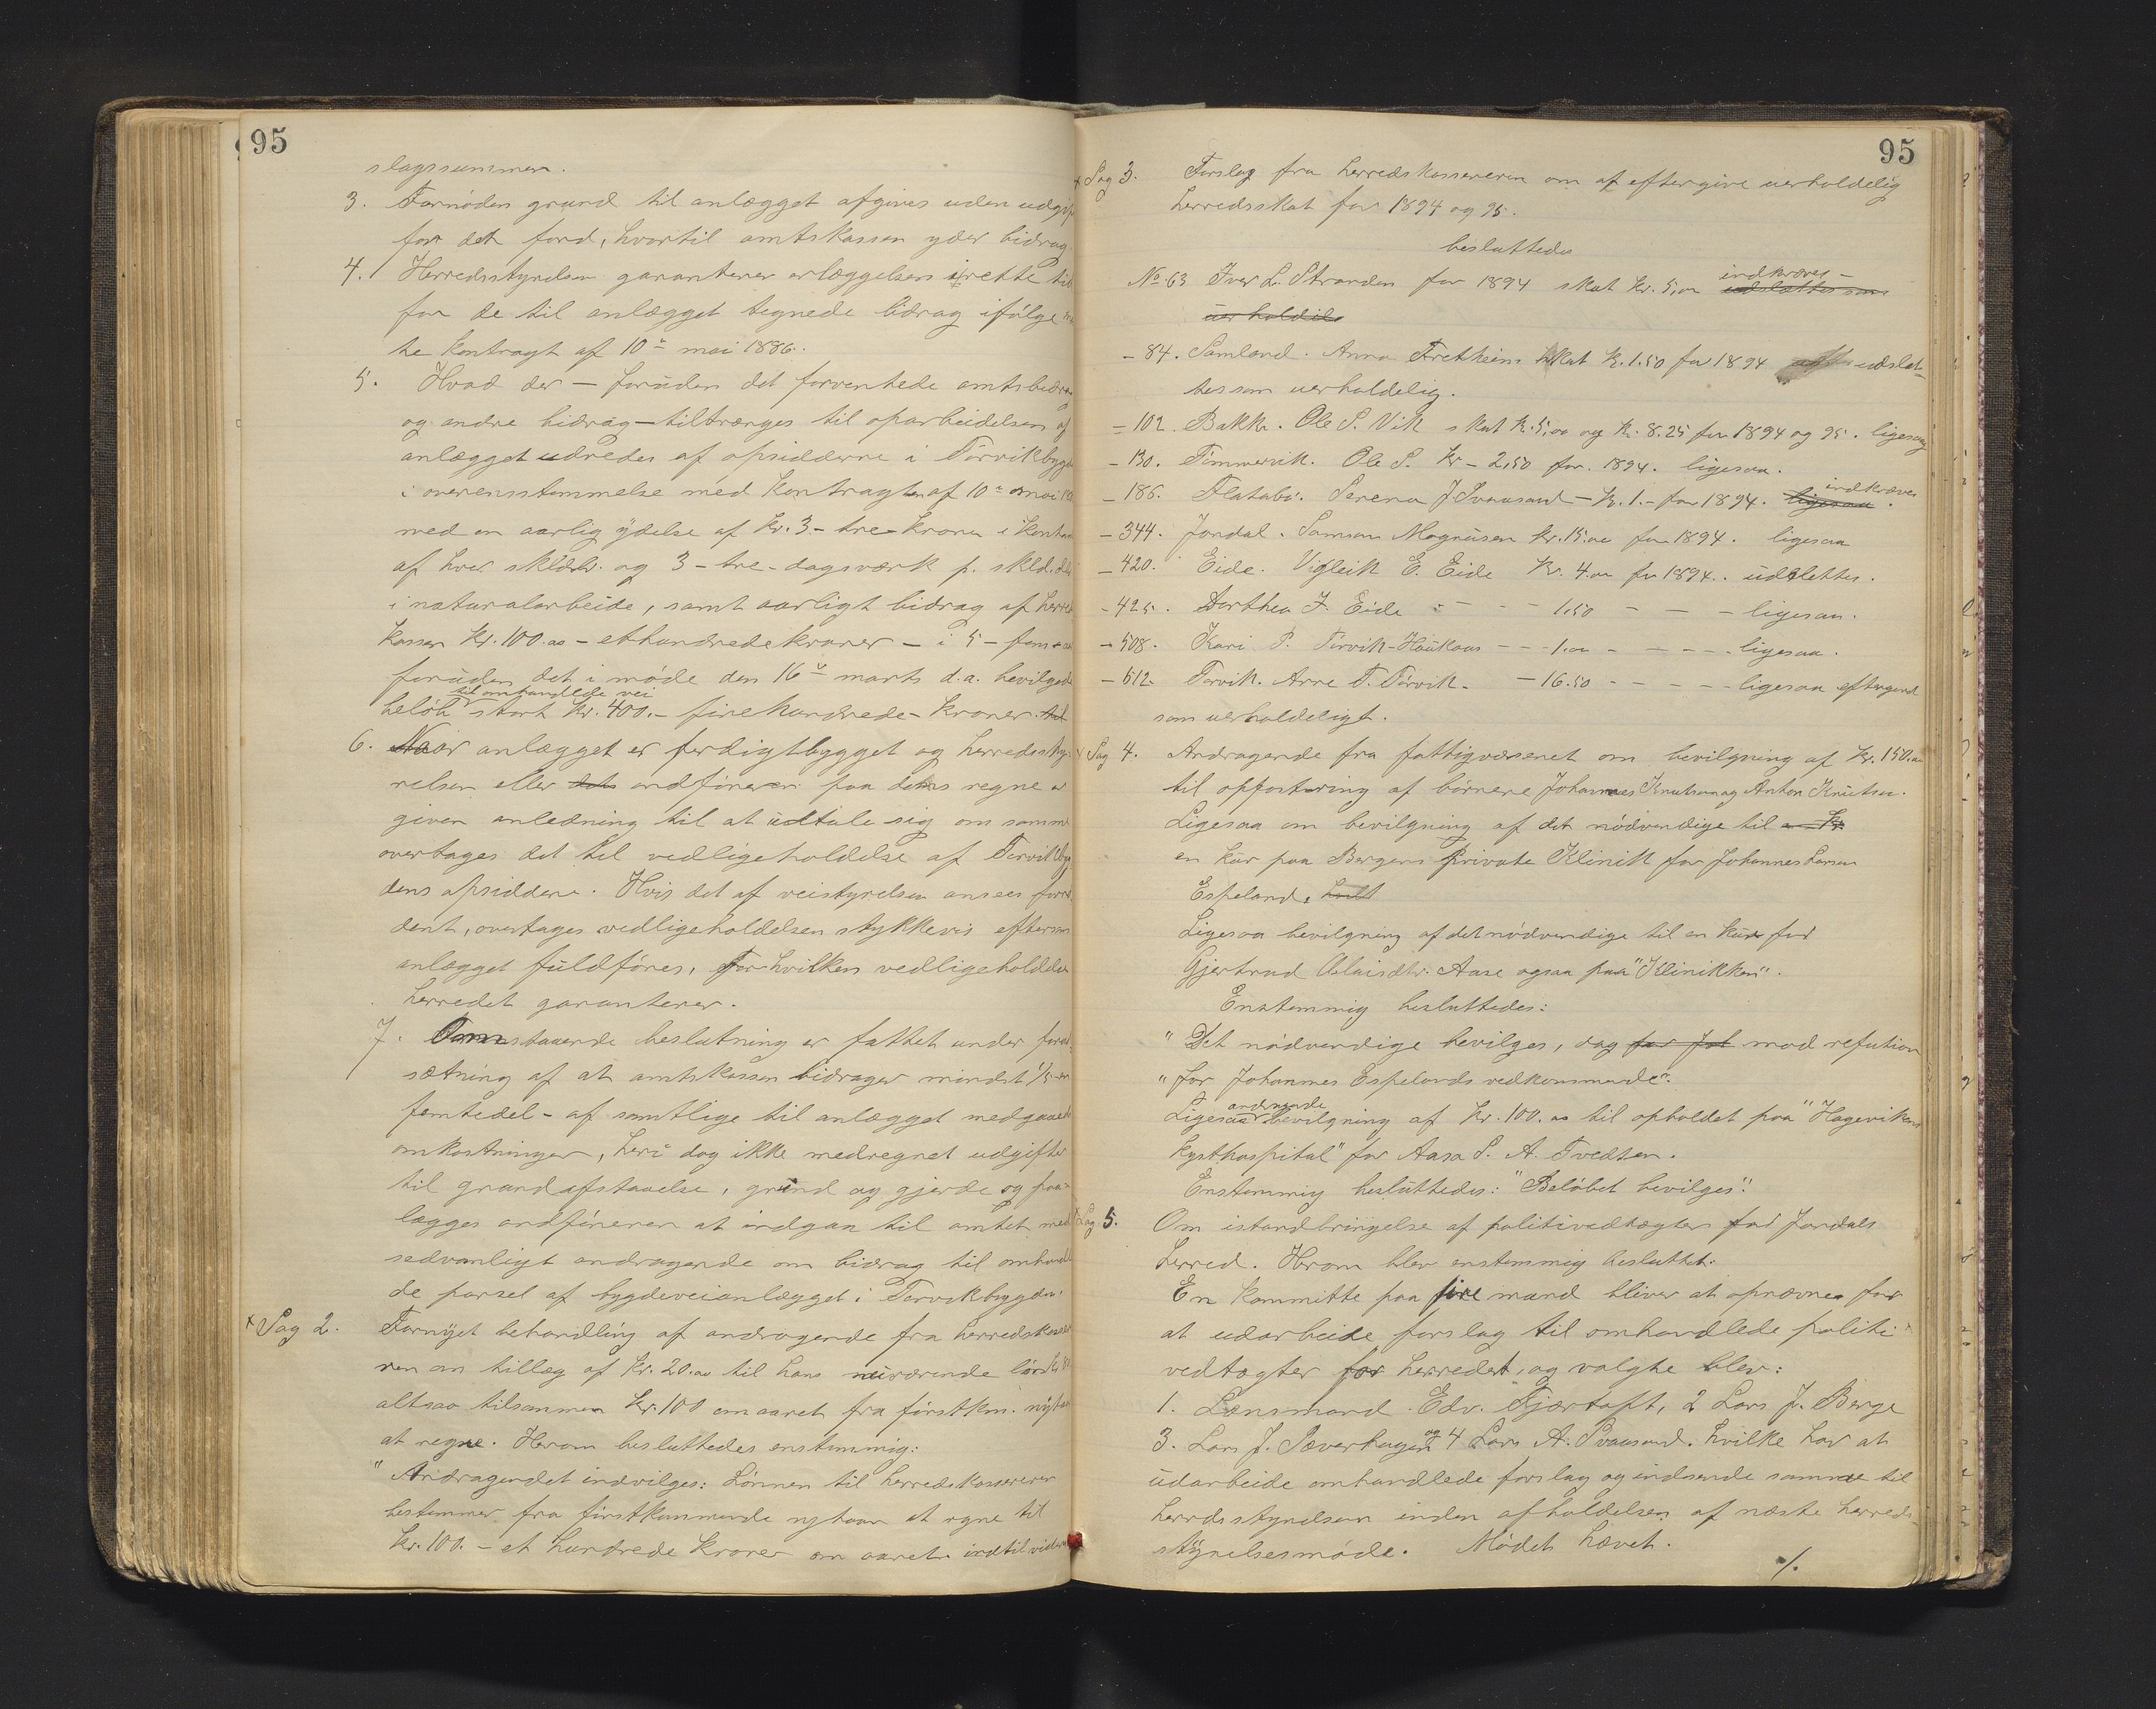 95
slagssummen.
3. Fornøden grund til anlægget afgives uden udgift
for det fond, hvortil amtskassen yder bidrag.
4. Herredsstyrelsen garanterer erlæggelsen i rette tid
for de til anlægget tegnede bidrag ifølge
te kontragt af 10de mai 1886.
5. Hvad der – foruden det forventede amtsbidrag
og andre bidrag – tiltrænges til oparbeidelsen af
anlægget udredes af opsidderne i Torvikbygden
i overensstemmelse med kontragten af 10de mai
med en aarlig ydelse af kr. 3 – tre – kroner i kontant
af hver skldlr. og 3 – tre – dagsværk p. skld.
i naturalarbeide, samt aarligt bidrag af herreds
kassen kr. 100.00 – ethundredekroner – i 5 – fem – aar
foruden det i møde den 16de marts d.a. bevilgede
til omhandlede vei
beløb stort kr. 400. – firehundrede – kroner. til
6. Naar anlægget er ferdigtbygget og herredssty-
relsen eller dets ordføreren paa dens vegne er
given anledning til at udtale sig om samme
overtages det til vedligeholdelse af Torvikbyg-
dens opsiddere. Hvis det af veistyrelsen ansees
dent, overtages vedligeholdelsen stykkevis eftersom
anlægget fuldføres, for hvilken vedligeholdelse
herredet garanterer.
7. Omstaaende beslutning er fattet under forud-
sætning af at amtskassen bidrager mindst 1/5 – en
femtedel – af samtlige til anlægget medgaaede
omkostninger, heri dog ikke medregnet udgifter
til grundafstaaelse, grind og gjerde og paa-
lægges ordføreren at indgaa til amtet med
sedvanligt andragende om bidrag til omhandle-
de parsel af bygdeveianlægget i Torvikbygden.
x Sag 2. Fornyet behandling af andragende fra herredskasse-
ren om tillæg af kr. 20.00 til hans nuværende løn
altsaa tilsammen kr. 100 om aaret fra førstkm. nytaar
at regne. Herom besluttedes enstemmig:
" Andragendet indvilges: Lønnen til herredskasserer
bestemmes fra førstkommende nytaar at regne til
kr. 100. – et hundrede kroner om aaret indtil videre
95
x Sag 3. Forslag fra herredskassereren om at eftergive uerholdelig
herredsskat for 1894 og 95.
besluttedes
indkræves –
No. 63 Iver L. Stranden for 1894 skat kr. 5,00 udslettes som
uerholdil.
– 84. Samland. Anna Fretheim skat kr. 1.50 for 1894 udslet-
tes som uerholdelig.
– 102. Bakke. Ole S. Vik skat kr. 5,00 og kr. 8.25 for 1894 og 95. ligesaa
– 130. Tømmervik. Ole S. kr – 2,50 for 1894. ligesaa.
indkræves
– 186. Flatabø. Serena J Svaasand – kr. 1.– for 1894. ligesaa.
– 344. Jondal. Samson Magnusen kr. 15.00 for 1894. ligesaa
– 420. Eide. Vigleik E. Eide kr. 4.00 for 1894. udslettes.
– 425. Dorthea J. Eide – – – 1.50 – – – ligesaa.
– 508. Kari P. Torvik-Haukaas – – 1.00 – – – – ligesaa.
– 512. Torvik. Arne T. Torvik. – 16.50 – – – – ligesaa eftergivet
som uerholdeligt.
x Sag 4. Andragende fra fattigvæsenet om bevilgning af kr. 150.00
til opfostring af børnene Johannes Knutsen og Anton Knutsen.
Ligesaa om bevilgning af det nødvendige til
en kur paa Bergens private Klinik for Johannes Larsen
Espeland.
Ligesaa bevilgning af det nødvendige til en kur for
Gjertrud Olaisdtr. Aase ogsaa paa "Klinikken".
Enstemmig besluttedes:
" Det nødvendige bevilges, dog for Joh mod refution
" for Johannes Espelands vedkommende".
andragende
Ligesaa bevilgning af kr. 100.00 til opholdet paa "Hagevikens
kysthospital" for Aasa S. A. Tvedten.
Enstemmig besluttedes: "Beløbet bevilges".
x Sag 5. Om istandbringelse af politivedtægter for Jondals
herred. Herom blev enstemmig besluttet:
En kommitte paa fire mand bliver at opnævnes for
at udarbeide forslag til omhandlede politi-
vedtægter for herredet, og valgte blev:
1. Lensmand Edv. Fjærtoft, 2 Lars J. Berge
og
3. Lars J. Sæverhagen 4 Lars A. Svaasand. hvilke har at
udarbeide omhandlede forslag og indsende samme til
herredsstyrelsen inden afholdelsen af næste herreds-
styrelsesmøde. Mødet hævet.
./.